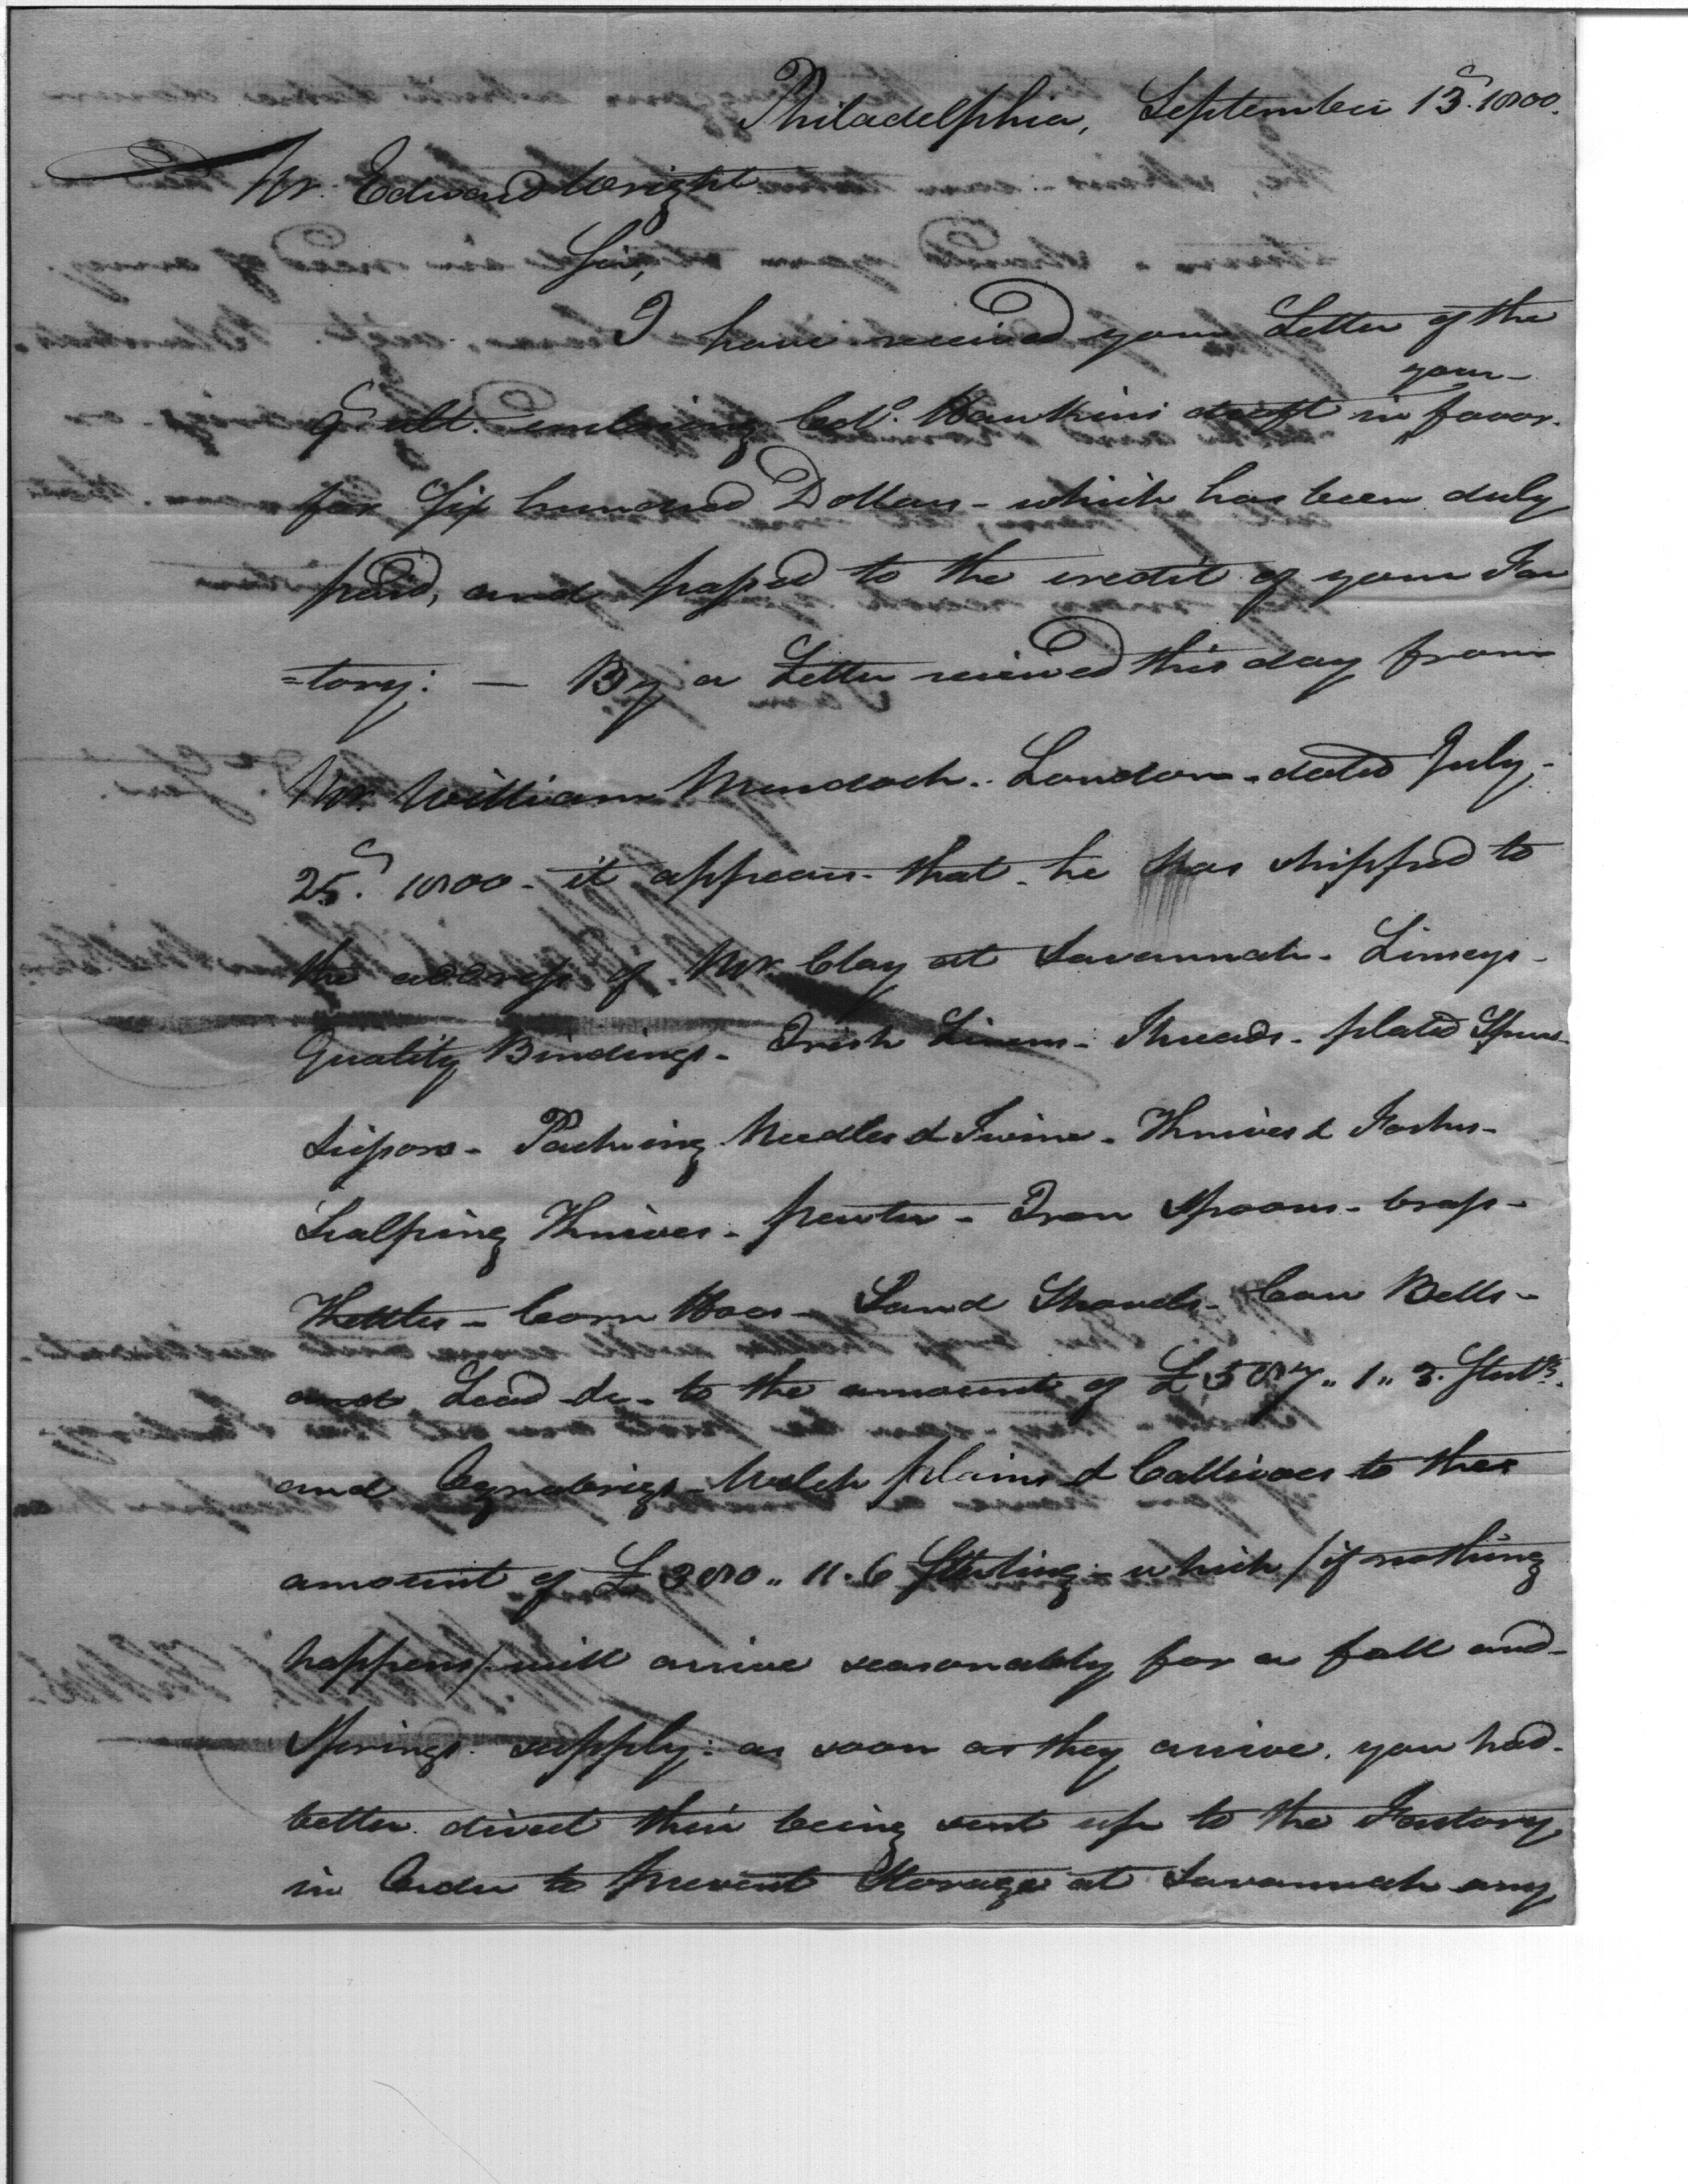 Philadelphia, September 13. 1800.
Mr. Edward Wright
Sir,
I have received your Letter of the
9 ult. enclosing Colo. Hawkins draft in your favor.
for Six hundred Dollars - which has been duly
paid, and passed to the credit of your Fac
=tory: — By a Letter received this day from
Mr. William Murdock. London - dated July.
25. 1800 - it appears that he has shipped to
the address of Mr. Clay at Savannah - Linseys -
Quality Bindings - Irish Linens - Threads - plated Spurs -
Scissors - Packing Needles & Twine - Knives & Forks -
Scalping Knives - pewter - Iron Spoons - brass -
Kettles - Corn Hoes - Sand Shovels - Cow Bells -
and Lead &c - to the amount of £587 " 1 " 3. Sterlg.
and Oznabrigs - Welch plains & Callicoes to the
amount of £380 " 11 . 6 Sterling - which / if nothing
happens / will arrive seasonably for a fall and -
Springs supply: as soon as they arrive. you had -
better direct their being sent up to the Factory
in Order to prevent Storage at Savannah any